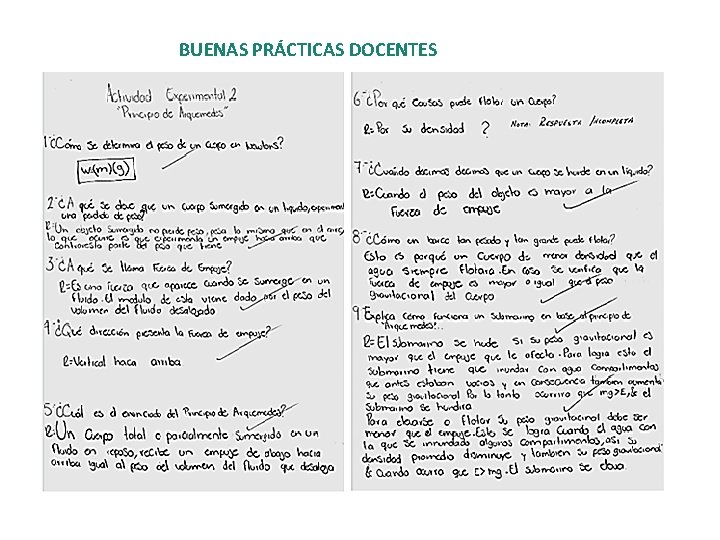 BUENAS PRÁCTICAS DOCENTES
Actividad Experimental 2
"Principio de Arquimedes"
1-¿Cómo se determina el peso de un cuerpo en Newtons?
w=(m)(g)
2-¿A qué se debe que un cuerpo sumergido en un líquido, experimenta
una perdida de peso?
R=Un objeto sumergido no pierde peso, pesa lo mismo que en el aire,
lo que ocurre es que experimenta un empuje hacia arriba que
contraresta parte del peso que tiene
3-¿A qué se llama Fuerza de Empuje?
R=Es una fuerza que aparece cuando se sumerge en un
fluido. El modulo de esta viene dado por el peso del
volumen del fluido desalojado
4-¿Qué dirección presenta la fuerza de empuje?
R=Vertical hacia arriba
5-¿Cuál es el enunciado del Principio de Arquimedes?
R=Un cuerpo total o parcialmente sumergido en un
fluido en reposo, recibe un empuje de abajo hacia
arriba igual al peso del volumen del fluido que desaloja
6-¿Por qué causas puede flotar un cuerpo?
R=Por su densidad ? NOTA: RESPUESTA INCOMPLETA
7-¿Cuándo decimos decimos que un cuerpo se hunde en un líquido?
R=Cuando el peso del objeto es mayor a la
fuerza de empuje
8-¿Cómo en barco tan pesado y tan grande puede flotar?
Esto es porqué un cuerpo de menor densidad que el
agua siempre flotara. En caso se verifica que la
fuerza de empuje es mayor o igual que el peso
gravitacional del cuerpo
9-Explica cómo funciona un submarino en base al principio de
"Arquimedes".
R=El submarino se hunde si su peso gravitacional es
mayor que el empuje que le afecta. Para logra esto el
submarino tiene que inundar con agua compartimentos
que antes estaban vacios y en consecuencia tambien aumenta
su peso gravitacional Por lo tanto ocurrira que mg>E, el
submarino se hundira
Para elevarse o flotar su peso gravitacional debe ser
menor que el empuje. Esto se logra cuando el agua con
la que se inundado algunos compartimentos, asi su
densidad promedio disminuye y tambien su peso gravitacional
cuando ocurra que E>mg. El submarino se eleva.